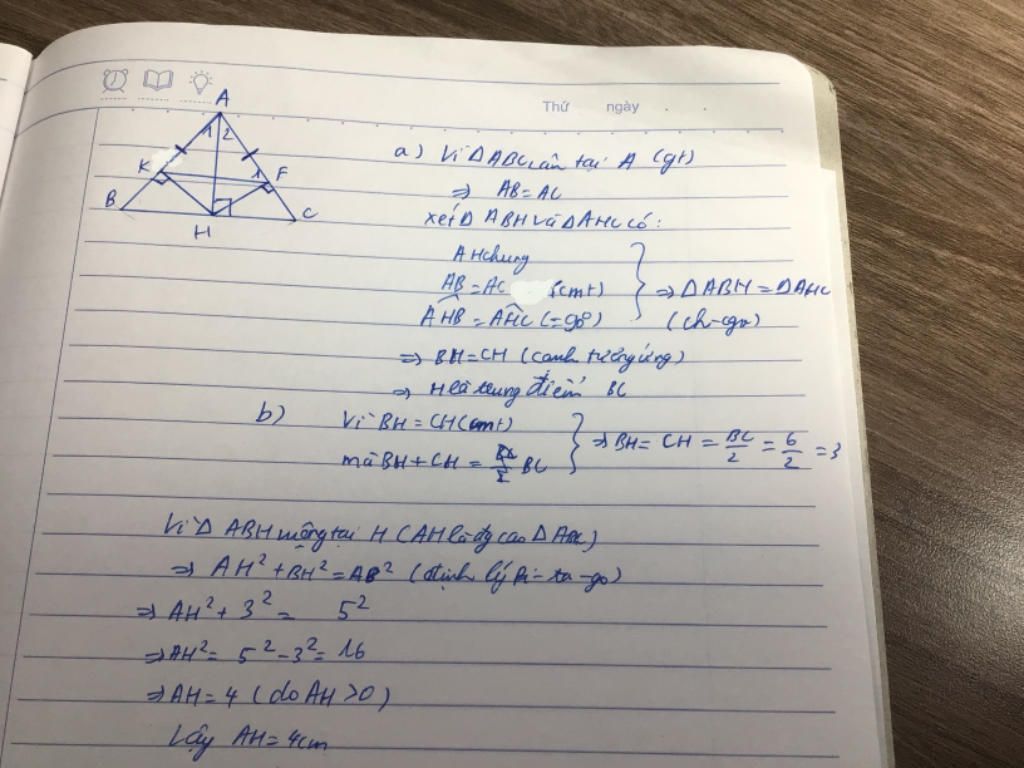 Thứ ngày
A
1 2
K 1 F
B C
H
a) Vì Δ ABC cân tại A (gt)
=> AB = AC
xét Δ ABH và Δ AHC có:
AH chung
AB = AC (cmt)
AHB = AHC (= 90°)
=> Δ ABH = Δ AHC
(ch-cgv)
=> BH = CH (cạnh tương ứng)
=> H là trung điểm BC
b) Vì BH = CH (cmt)
mà BH + CH = BC
=> BH = CH = BC/2 = 6/2 = 3
Vì Δ ABH vuông tại H (AH là đg cao Δ ABC)
=> AH² + BH² = AB² (định lý Pi-ta-go)
=> AH² + 3² = 5²
=> AH² = 5² - 3² = 16
=> AH = 4 (do AH > 0)
Vậy AH = 4cm